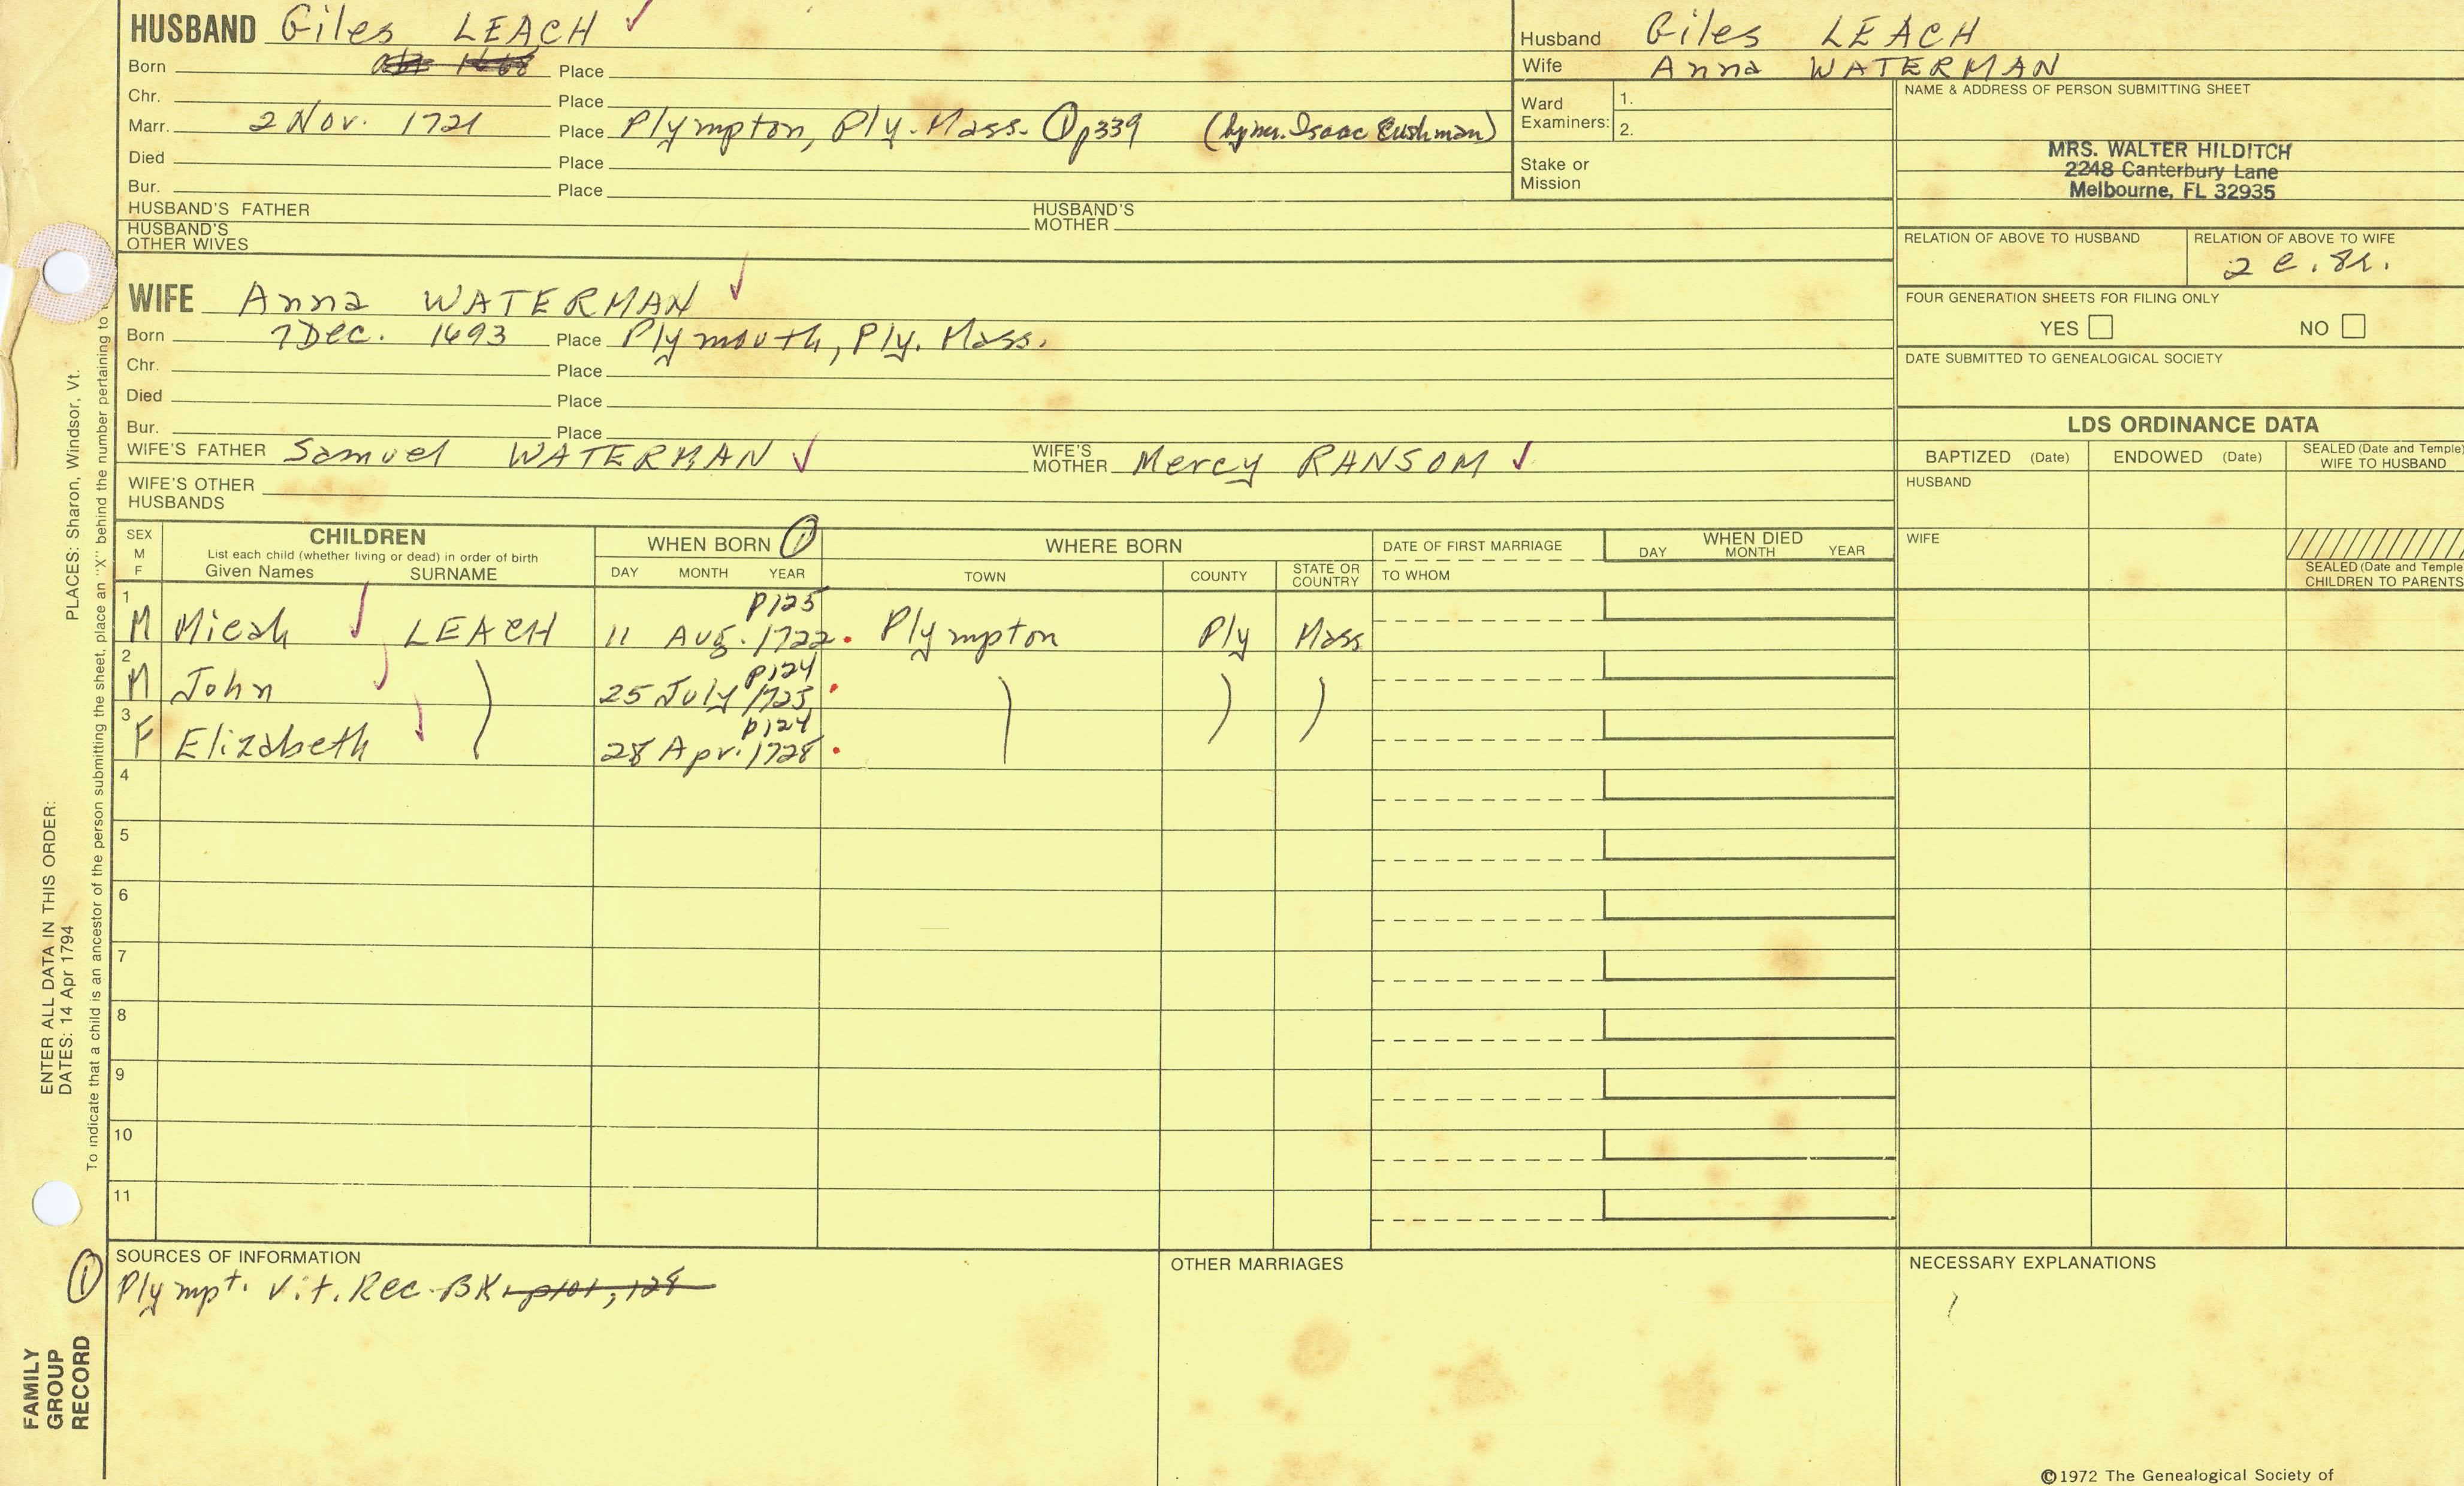 HUSBAND Giles LEACH ✓
Born abt 1668 Place
Chr. Place
Marr. 2 Nov. 1721 Place Plympton, Ply. Mass. ① p339 (by mr. Isaac Cushman)
Died Place
Bur. Place
HUSBAND'S FATHER HUSBAND'S MOTHER
HUSBAND'S OTHER WIVES
Husband Giles LEACH
Wife Anna WATERMAN
Ward Examiners: 1.
2.
Stake or Mission
NAME & ADDRESS OF PERSON SUBMITTING SHEET
MRS. WALTER HILDITCH
2248 Canterbury Lane
Melbourne, FL 32935
RELATION OF ABOVE TO HUSBAND RELATION OF ABOVE TO WIFE
2 c. 8r.
FOUR GENERATION SHEETS FOR FILING ONLY
YES NO
DATE SUBMITTED TO GENEALOGICAL SOCIETY
WIFE Anna WATERMAN ✓
Born 7 Dec. 1693 Place Plymouth, Ply. Mass.
Chr. Place
Died Place
Bur. Place
WIFE'S FATHER Samuel WATERMAN ✓ WIFE'S MOTHER Mercy RANSOM ✓
WIFE'S OTHER HUSBANDS
LDS ORDINANCE DATA
BAPTIZED (Date) ENDOWED (Date) SEALED (Date and Temple) WIFE TO HUSBAND
HUSBAND
WIFE
SEALED (Date and Temple CHILDREN TO PARENTS
SEX M F CHILDREN WHEN BORN ① WHERE BORN DATE OF FIRST MARRIAGE WHEN DIED
List each child (whether living or dead) in order of birth
Given Names SURNAME DAY MONTH YEAR TOWN COUNTY STATE OR COUNTRY TO WHOM DAY MONTH YEAR
p125
1 M Micah ✓ LEACH 11 Aug. 1722 Plympton Ply Mass
p124
2 M John ✓ ) 25 July 1725 ) ) )
p124
3 F Elizabeth ✓ 28 Apr. 1728
4
5
6
7
8
9
10
11
SOURCES OF INFORMATION OTHER MARRIAGES NECESSARY EXPLANATIONS
① Plympt. Vit. Rec. BK 1 p101, 124
PLACES: Sharon, Windsor, Vt.
ENTER ALL DATA IN THIS ORDER:
DATES: 14 Apr 1794
To indicate that a child is an ancestor of the person submitting the sheet, place an "X" behind the number pertaining to
FAMILY
GROUP
RECORD
©1972 The Genealogical Society of